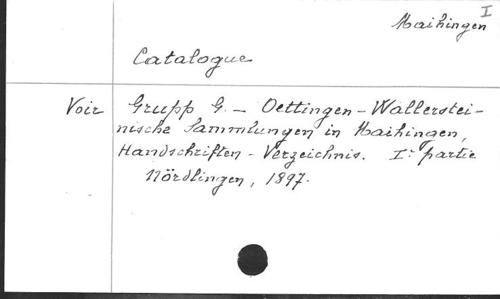 I
Maihingen
Catalogue
Voir Grupp G. - Oettingen-Wallerstei-
nische Sammlungen in Maihingen,
Handschriften-Verzeichnis. Iº partie
Nördlingen, 1897.